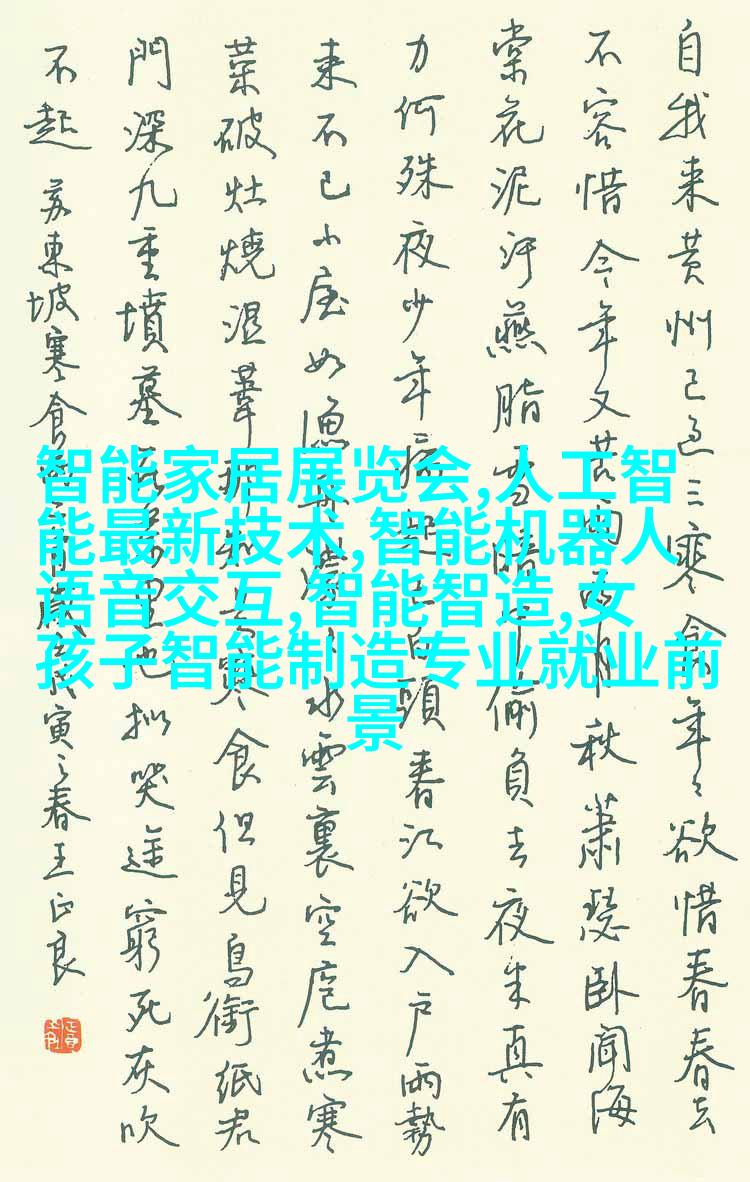 自我来黄州已过三寒食年々欲惜春春去
不容惜今年又苦雨两月秋蕭瑟卧聞海
棠花泥汙燕脂雪闇中偷負去夜半真有
力何殊夜少年病起白頭春江欲入户雨勢
来不已小屋如渔舟濛々水雲裏空庖煮寒
菜破灶燒濕葦那知是寒食但見烏銜紙君
門深九重墳墓在万里也拟哭途窮死灰吹
不起 苏東坡寒食歲戊寅之春王正良
智能家居展览会,人工智
能最新技术,智能机器人
语音交互,智能智造,女
孩子智能制造专业就业前
景